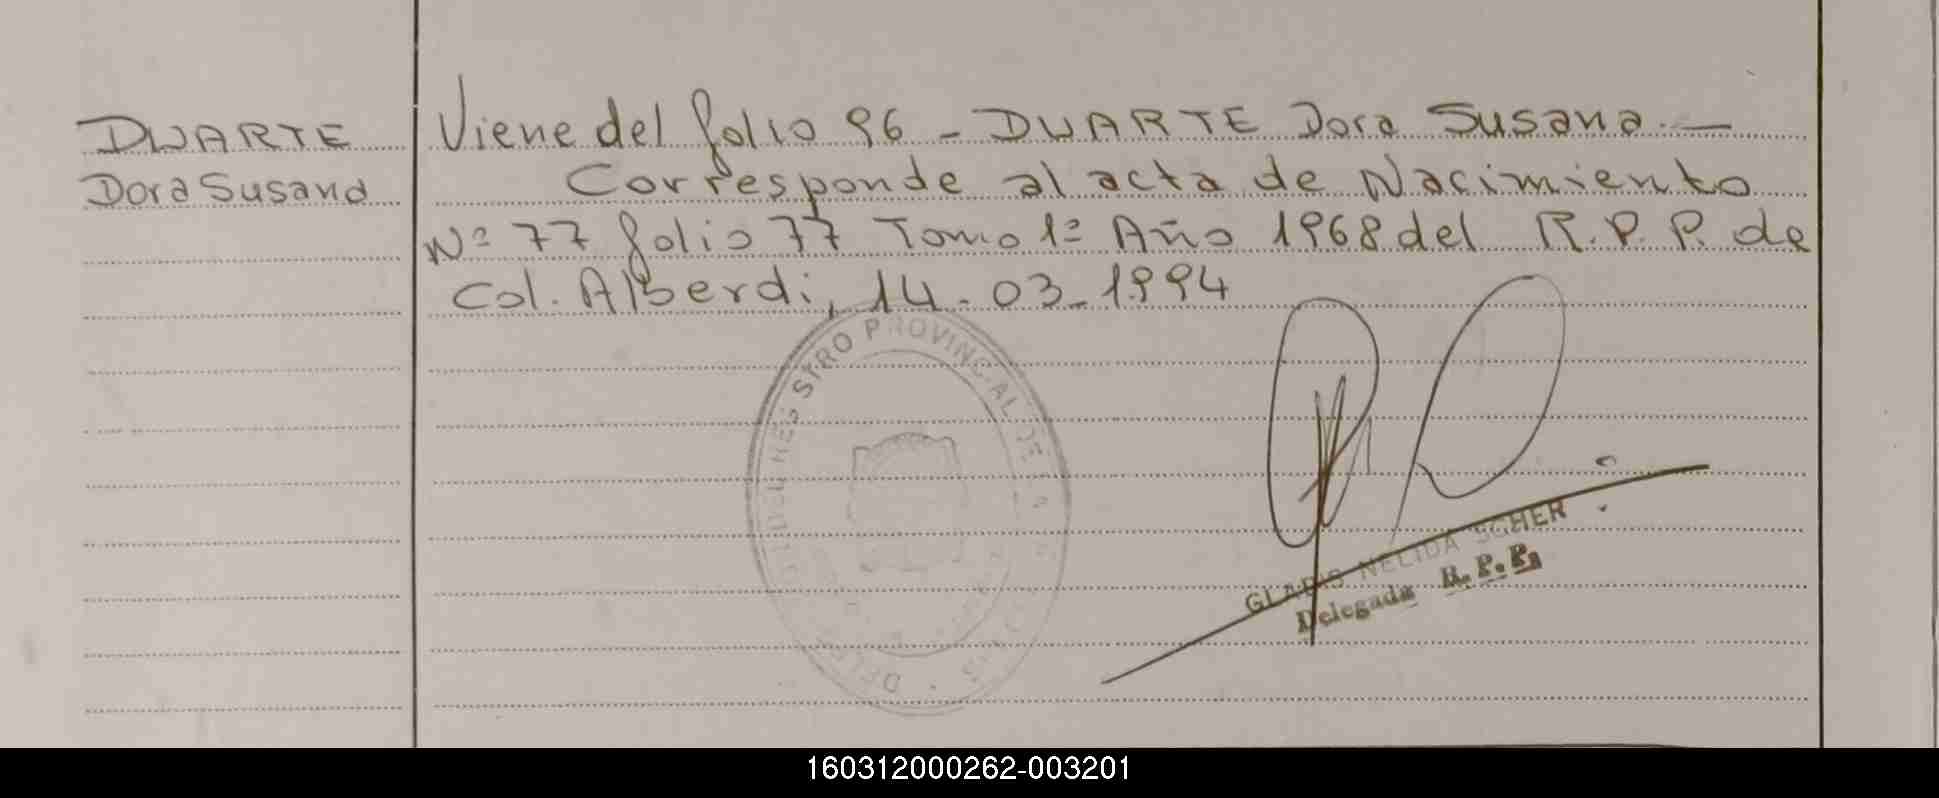 DUARTE
Dora Susana
Viene del folio 96 - DUARTE Dora Susana. —
Corresponde al acta de Nacimiento
Nº 77 folio 77 Tomo 1º Año 1968 del R.P.P. de
Col. Alberdi, 14-03-1994
REGISTRO PROVINCIAL DE LAS
GLADIS NELIDA SCHER
Delegada R.P.P.
160312000262-003201